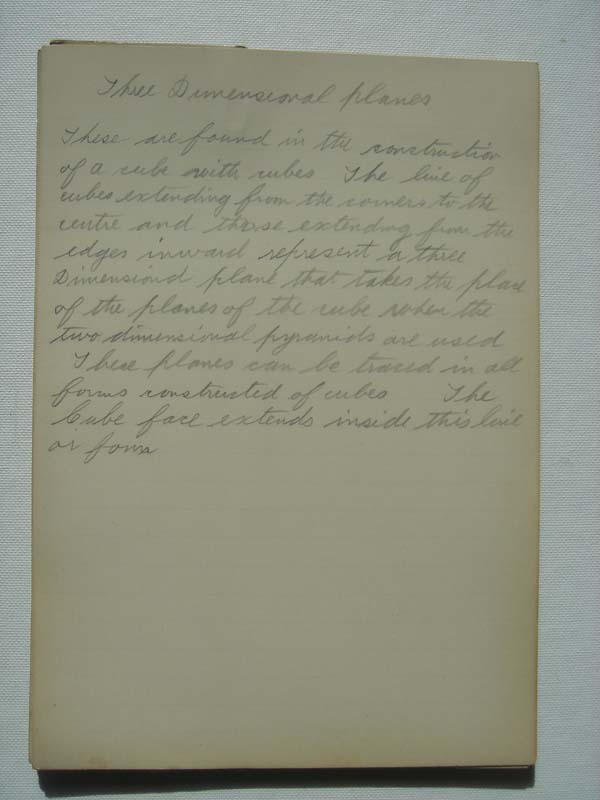 Three Dimensional planes
These are found in the construction
of a cube with cubes The line of
cubes extending from the corners to the
centre and those extending from the
edges inward represent a three
Dimensional plane that takes the place
of the planes of the cube when the
two dimensional pyramids are used
These planes can be traced in all
forms constructed of cubes The
Cube face extends inside this line
or form